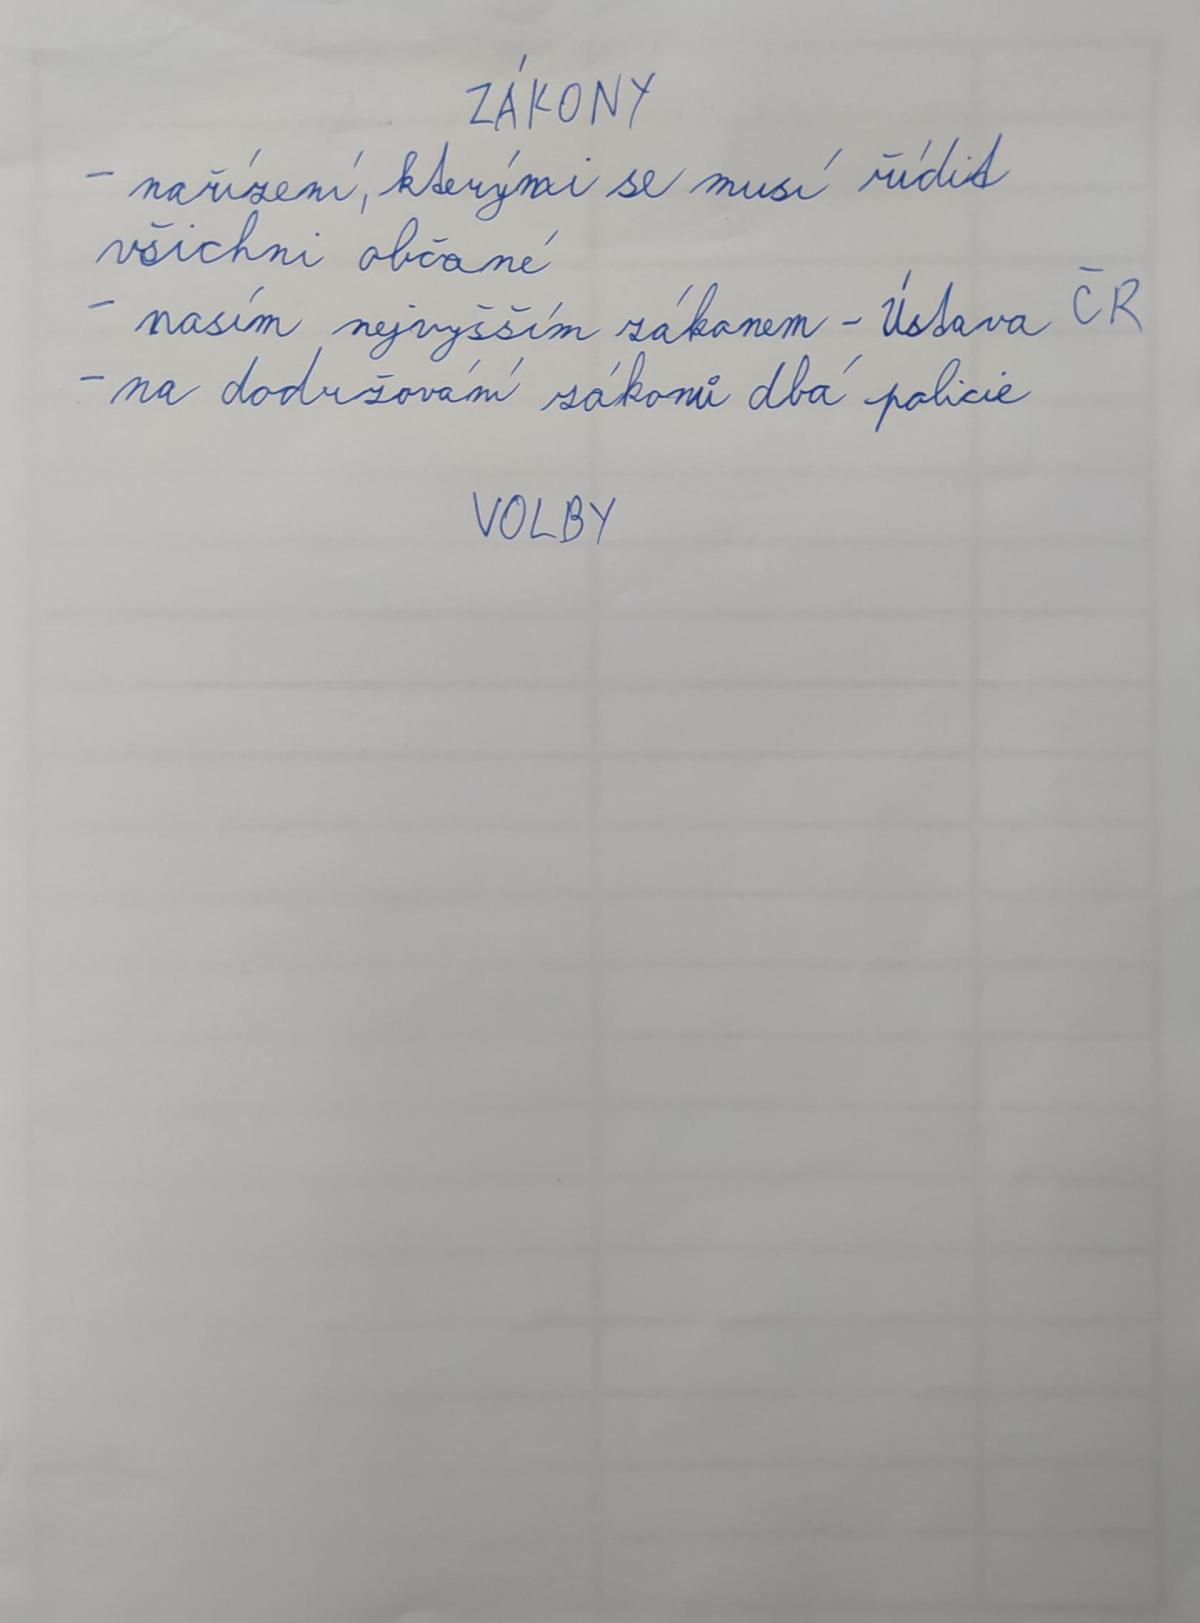 ZÁKONY
- nařízení, kterými se musí řídit
všichni občané
- nasím nejvyšším zákonem - Ústava ČR
- na dodržování zákonů dbá policie
VOLBY